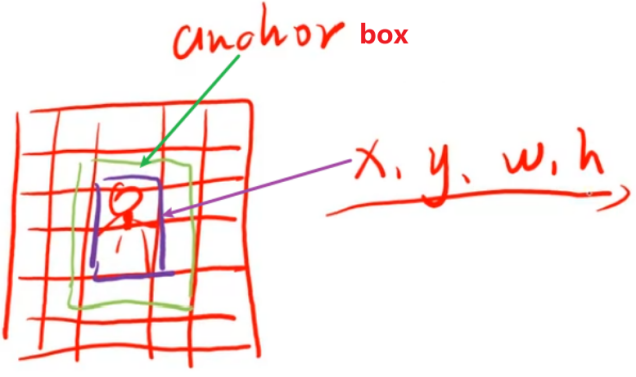 anchor box
x, y, w, h